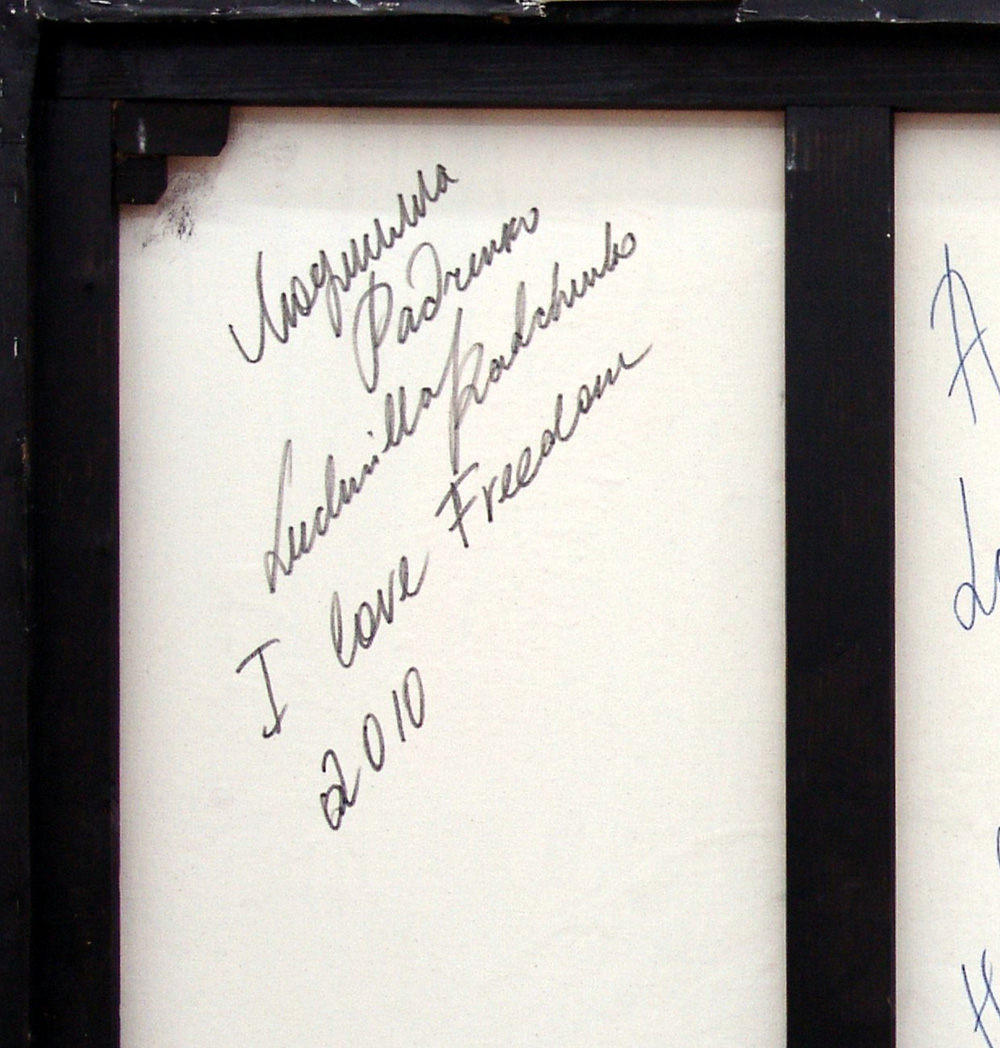 Людмилла
Радченко
Ludmilla Radchenko
I love Freedom
2010